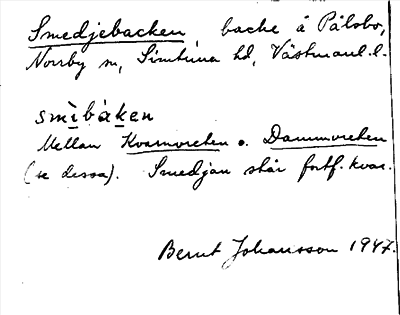 Smedjebacken, backe å Pålsbo,
Norrby sn, Simtuna hd, Västmanl. l.
smìbàken
Mellan Kvarnvreten o. Dammvreten
(se dessa). Smedjan står fortf. kvar.
Bernt Johansson 1947.